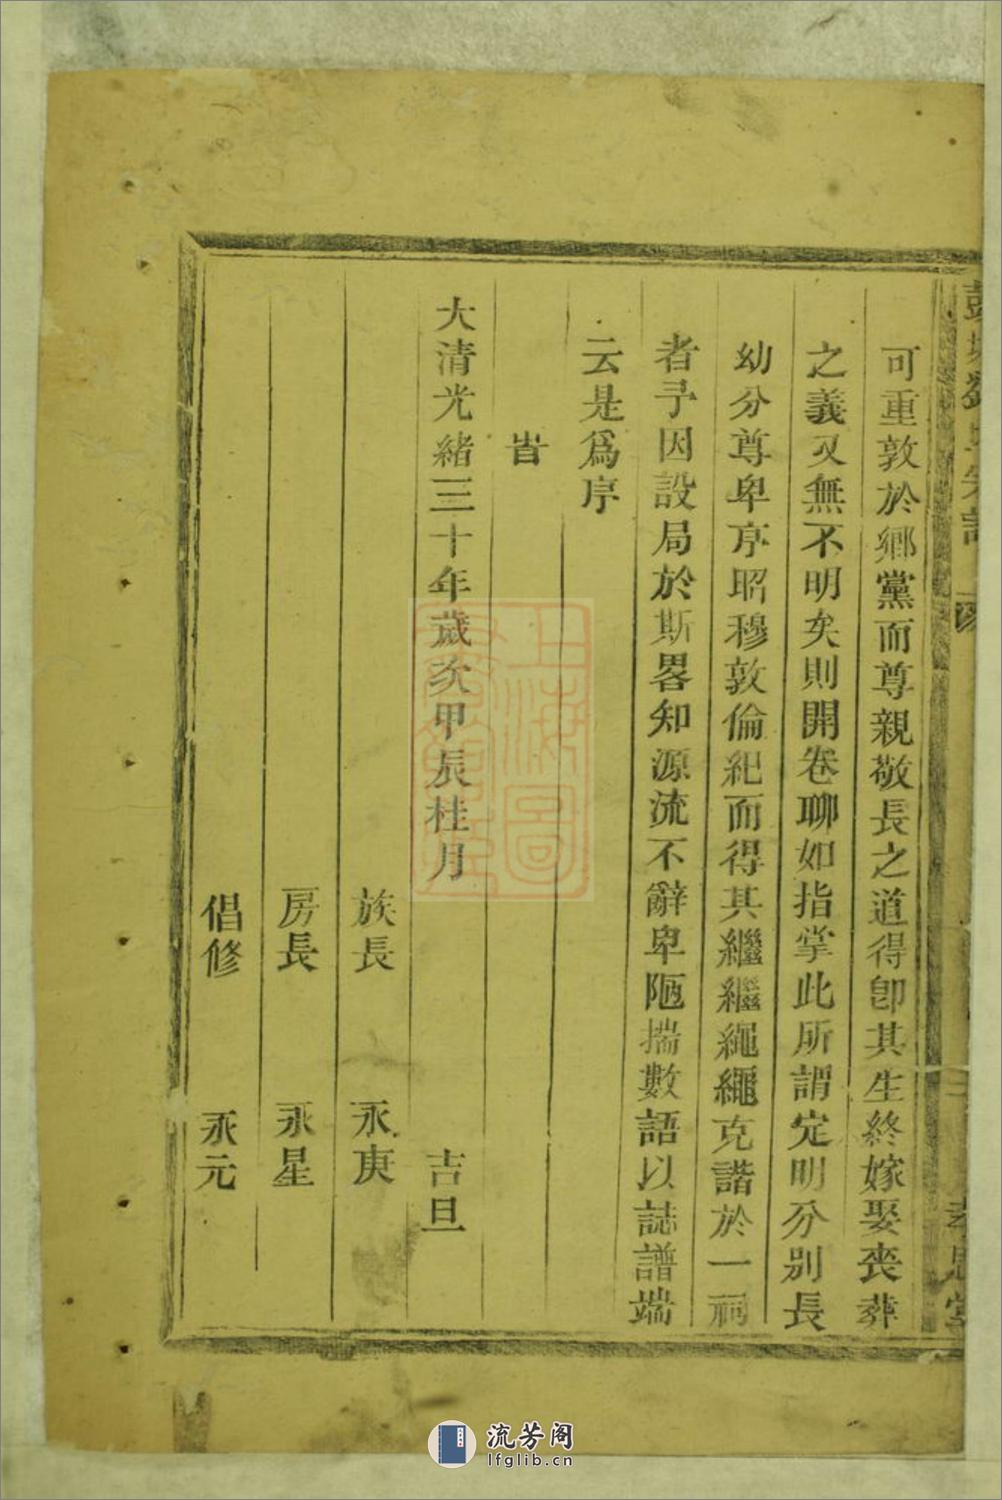 彭城劉氏宗譜
可重敦於鄉黨而尊親敬長之道得卽其生終嫁娶喪葬
之義又無不明矣則開卷聊如指掌此所謂定明分別長
幼分尊卑序昭穆敦倫紀而得其繼繼繩繩克諧於一祠
者予因設局於斯畧知源流不辭卑陋揣數語以誌譜端
云是爲序
旹
大清光緒三十年歲次甲辰桂月 吉旦
族長 永庚
房長 永星
倡修 永元
上海圖
流芳阁
lfglib.cn